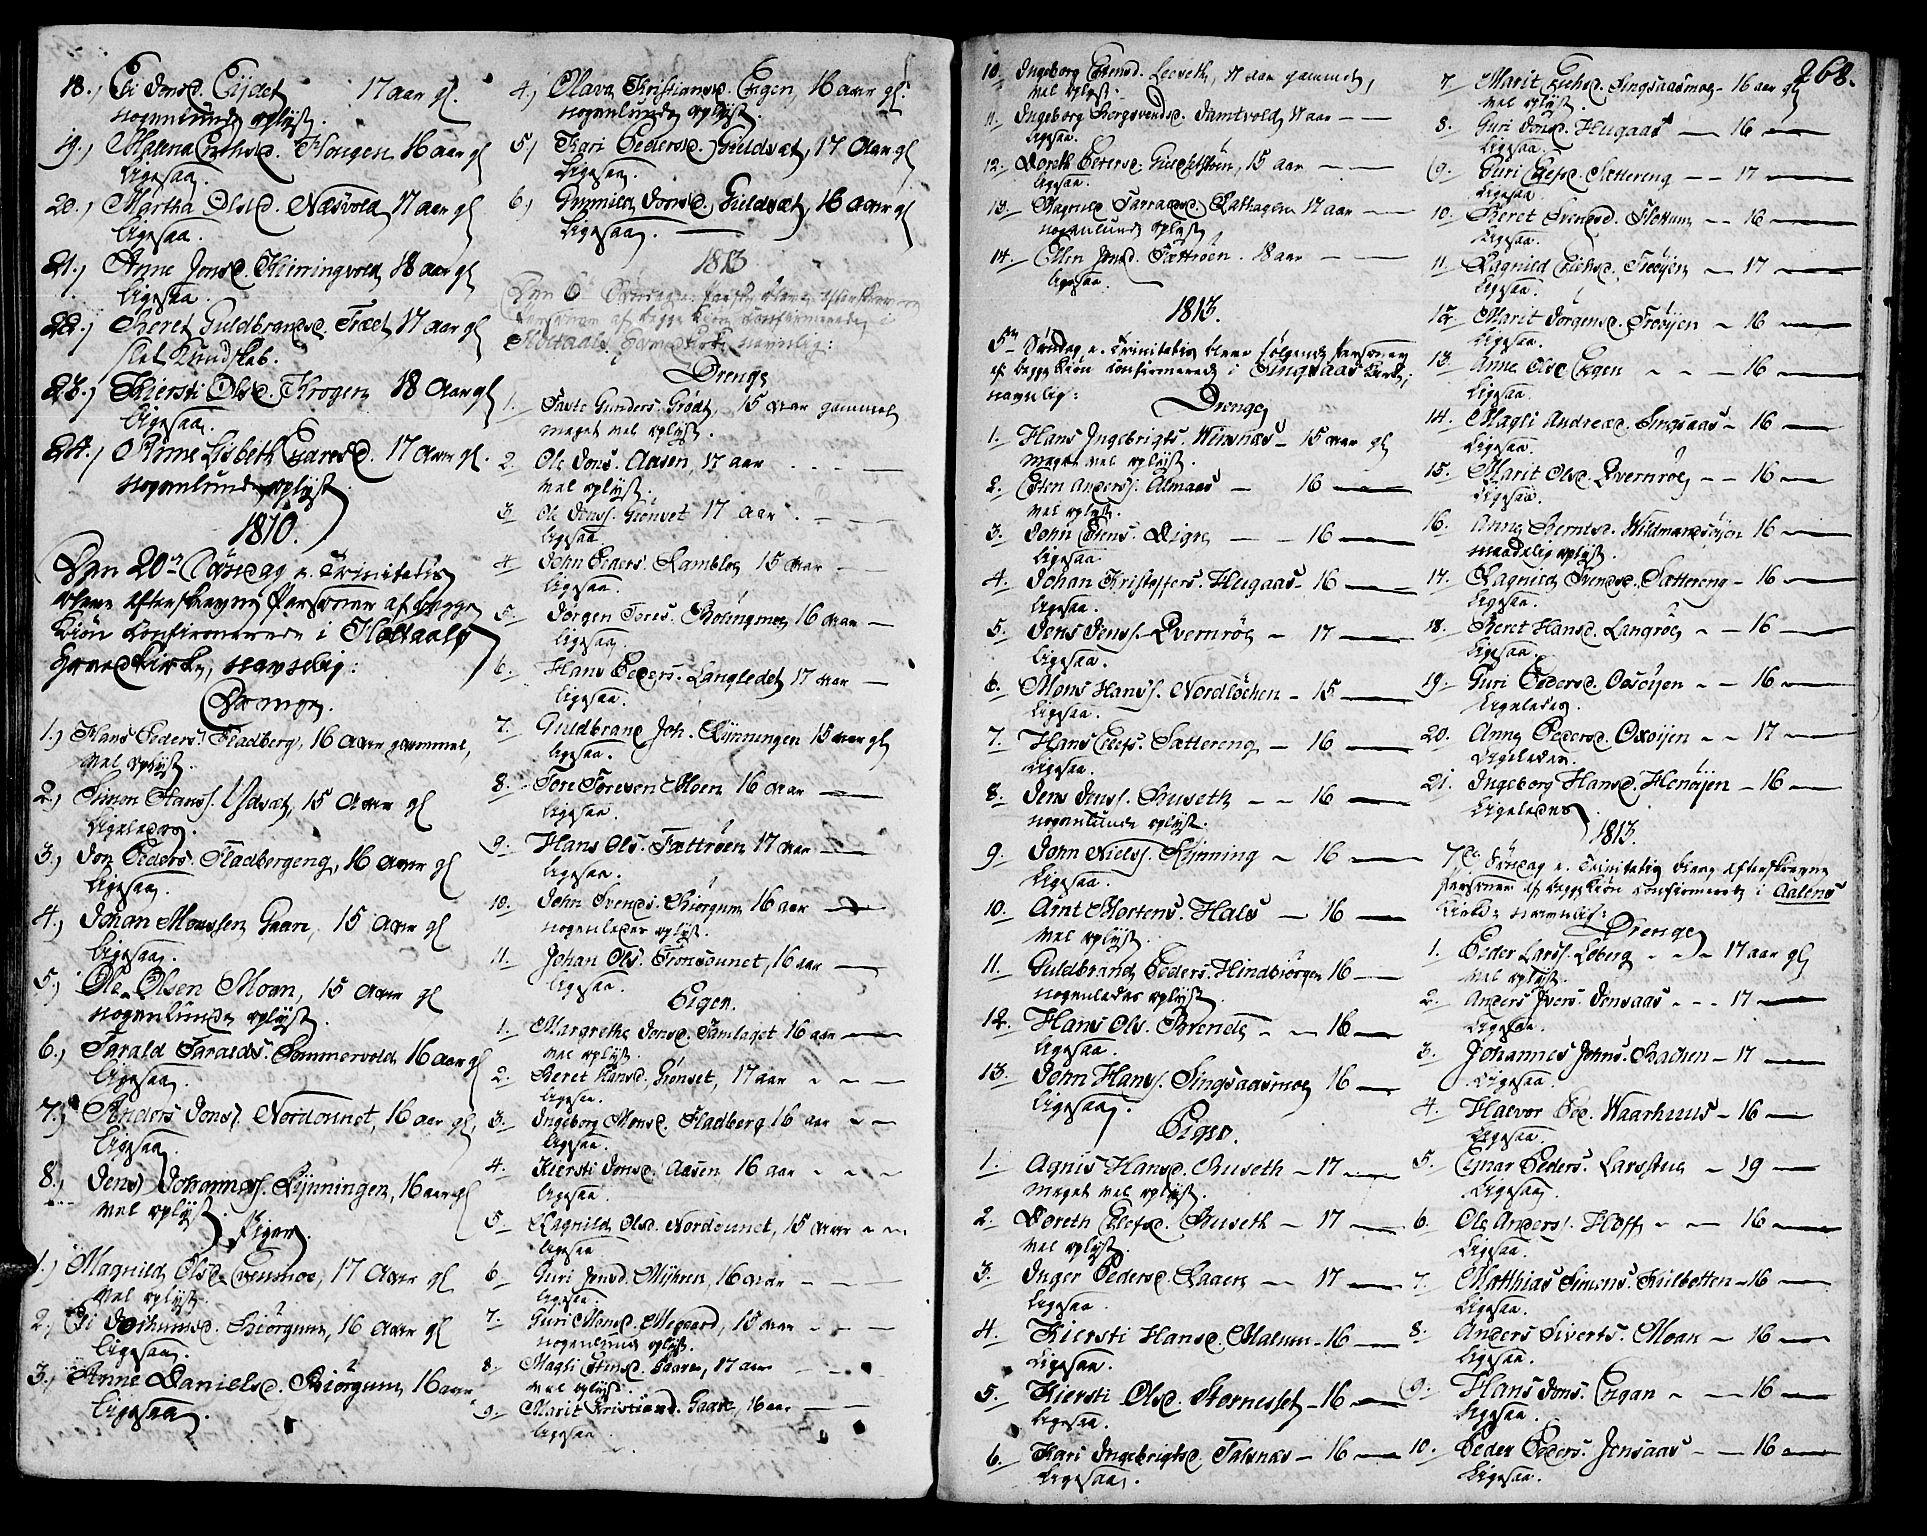 18.) Eli Jonsd. Eijdet 17 aar gl.
nogenlunde oplyst.
19.) Malena Erichsd. Hougen 16 aar gl
Ligesaa.
20.) Martha Olsd. Næsvold 17 aar gl
ligesaa.
21.) Anne Jonsd. Kierringvold 18 aar gl
ligesaa.
22.) Beret Guldbrandsd. Træet 17 aar gl
slet Kundskab.
23.) Kiersti Olsd. Krogen 18 aar gl
Ligesaa.
24.) Anne Lisbeth 17 aar gl.
nogenlunde oplyst.
1810.
Den 20de Søndag e. Trinitatis
bleve efterskrevne Personer af begge
Kiøn confirmerede i Holtaals
Hovedkirke, navnlig:
Drenge.
1.) Hans Peders. Fladberg, 16 aar gammel,
vel oplyst.
2.) Simon Hanss. Ydsæt, 15 aar gl
Ligeledes.
3.) Jon Peders. Fladbergeng, 16 aar gl
Ligesaa.
4.) Johan Monssen Gaare, 15 aar gl
Ligesaa.
5.) Ole Olsen Moan, 15 aar gl
nogenlunde oplyst.
6.) Tarald Taralds. Sommervold 16 aar gl
Ligesaa.
7.) Anders Jonss. Nordounet, 16 aar gl.
Ligesaa.
8.) Jens Johanness. Kynningen, 16 aar gl
vel oplyst.
Piger.
1.) Magnild Olsd. Evenmoe, 17 aar gl
vel oplyst.
2.) Eli Joehumsd. Biørgum, 16 aar gl
Ligesaa.
3.) Anne Danielsd. Biørgum, 16 aar
Ligesaa.
4.) Olava Kristiansd. Engen, 16 aar gl.
nogenlunde oplyst.
5.) Kari Pedersd. Guldsæt, 17 aar gl
Ligesaa.
6.) Gunnild Jonsd. Guldsæt, 16 aar gl
Ligesaa.
1813
Den 6 Søndag e. Paaske bleve efterskrevne
Personer af begge Kiøn confirmerede i
Holtaals Hovedkirke navnlig:
Drenge
1. Saste Gunders. Grødt, 15 aar gammel
meget vel oplyst.
2. Ole Jons. Aasen, 17 aar
vel oplyst.
3. Ole Jonss. Grønset 17 aar
Ligesaa.
4. John Peders. Ramblee 15 aar
Ligesaa.
5. Jørgen Tores. Bolingmoe 16 aar
Ligesaa.
6. Hans Peders. Langledet 17 aar
Ligesaa.
7. Guldbrand Joh. Kynningen 15 aar gl
Ligesaa.
8. Tore Toresen Moen 16 aar
Ligesaa.
9. Hans Ols. Tættrøen 17 aar
Ligesaa.
10. John Svends. Biørgum 16 aar
nogenledes oplyst.
11. Johan Ols. Trønsounet, 16 aar
Ligesaa.
Piger.
1. Margrethe Jonsd. Samlaget 16 aar
vel oplyst.
2. Beret Hansd. Grønset, 17 aar
Ligesaa.
3. Ingeborg Monsd. Fladberg 16 aar
Ligesaa.
4. Kiersti Jonsd. Aasen 16 aar
Ligesaa.
5. Ragnild Olsd. Nordounet, 15 aar
Ligesaa.
6. Guri Jonsd. Myhren, 16 aar
Ligesaa.
7. Guri Monsd. Megaard, 15 aar
nogenlunde oplyst.
8. Magli Estensd. Gaaren, 17 aar
vel oplyst.
9. Marit Kristiansd. Gaare, 16 aar
Ligesaa.
268.
10. Ingeborg Estensd. Leeveth, 17 aar gammel,
vel oplyst.
11. Ingeborg Torgsvendsd. Damtvold 17 aar
Ligesaa.
12. Doreth Petersd. Guldetstøen, 15 aar
Ligesaa.
13. Magnild Tarraldsd. Rathagen 17 aar
nogenlunde oplyst.
14. Ellen Jonsd. Tættrøen. 18 aar
Ligesaa.
1813.
5te Søndag e. Trinitatis bleve følgende Personer
af begge Kiøn confirmerede i Singsaas Kirke,
navnlig:
Drenge
1. Hans Ingebrigts. Winsnæs 15 aar gl
meget vel oplyst.
2. Esten Anderss. Almaas 16
vel oplyst.
3. John Estens. Digre 16
Ligesaa.
4. Johan Kristoffers. Hugaas 16
Ligesaa.
5. Jens Jenss. Qvernrøe 17
Ligesaa.
6. Mons Hanss. Nordløchen 15
Ligesaa.
7. Hans Elefs. Sættereng 16
Ligesaa.
8. Jens Jenss. Buseth 16
nogenlunde oplyst.
9. John Nielss. Kynning 16
Ligesaa.
10. Arnt Mortens. Hals 16
vel oplyst.
11. Guldbrand Peders. Hindbiørgen 16
nogenledes oplyst.
12. Hans Ols. Brende 16
Ligesaa.
13. John Hanss. Singsaasmoe 16
Ligesaa.
Piger.
1. Agnis Hansd. Buseth 17
meget vel oplyst.
2. Doreth Elefsd. Buseth 17
vel oplyst.
3. Inger Pedersd. Raaen 17
Ligesaa.
4. Kiersti Hansd. Malum 16
Ligesaa.
5. Kiersti Olsd. Stornesset 16
Ligesaa.
6. Kari Ingebrigtsd. Talsnæs 16
Ligesaa.
7. Marit Erichsd. Singsaasmoe 16 aar gl
vel oplyst.
8. Guri Jonsd. Hugaas 16
Ligesaa.
9. Guri Elefsd. Sættereng 17
Ligesaa.
10. Beret Svendsd. Flottum 16
Ligesaa.
11. Ragnild Erichsd. Trøøyen 17
Ligesaa.
12. Marit Jørgensd. Trøøyen 16
Ligesaa.
13. Anne Olsd Engen 16
Ligesaa.
14. Magli Andreæd. Singsaas 16
Ligesaa.
15. Marit Olsd. Qvernrøe 16
Ligesaa.
16. Anne Berntsd. Wildmandsøyen 16
maadelig oplyst.
17. Ragnild Svendsd. Sættereng 16
Ligesaa.
18. Beret Hansd. Langrøe 16
Ligesaa.
19. Guri Pedersd. Oxøyen 16
Ligeledes.
20. Anne Pedersd. Oxøyen 17
Ligeledes.
21. Ingeborg Hansd. Henøyen 16
Ligeledes
1813.
7de Søndag e. Trinitatis bleve efterskrevne
Personer af begge Kiøn confirmerede i Aalens
Kirke navnlig:
Drenge
1. Peder Larss. Løberg 17 aar gl
vel oplyst.
2. Anders Ivers. Jensaas 17
Ligesaa.
3. Johannes Johns. Bachen 17
Ligesaa.
4. Halvor Ped. Waarhuus 16
Ligesaa.
5. Einar Peders. Larsstue 19
Ligesaa.
6. Ole Anderss. Hoff 16
Ligesaa.
7. Matthias Simons. Kulbotten 16
Ligesaa.
8. Anders Siverts. Moan 16
Ligesaa.
9. Hans Jons. Engan 16
Ligesaa.
10. Peder Peders. Jensaas 16
Ligesaa.